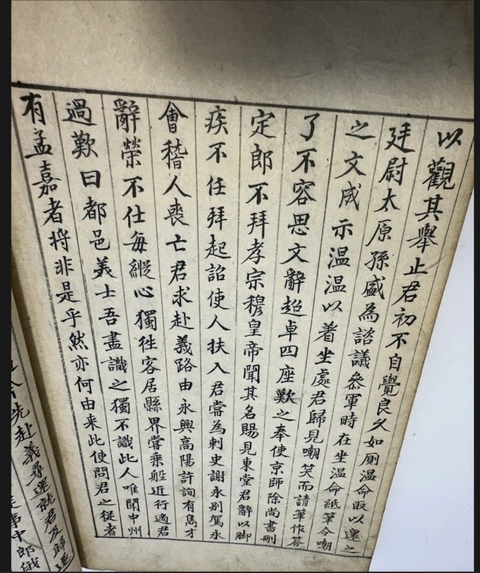 以觀其舉止君初不自覺良久如廁温命取以還之
廷尉太原孫盛為諮議叅軍時在坐温命紙筆令嘲
之文成示温温以着坐處君歸見嘲笑而請筆作答
了不容思文辭超卓四座歎之奉使京師除尚書刪
定郎不拜孝宗穆皇帝聞其名賜見東堂君辭以脚
疾不任拜起詔使人扶入君嘗為刺史謝永别駕永
會稽人喪亡君求赴義路由永興高陽許詢有才
辭榮不仕每縱心獨徃客居縣界嘗乘船近行適君
過歎曰都邑義士吾盡識之獨不識此人唯聞中州
有孟嘉者將非是乎然亦何由来此使問君之從者
先赴義尋還就君
事中郎俄